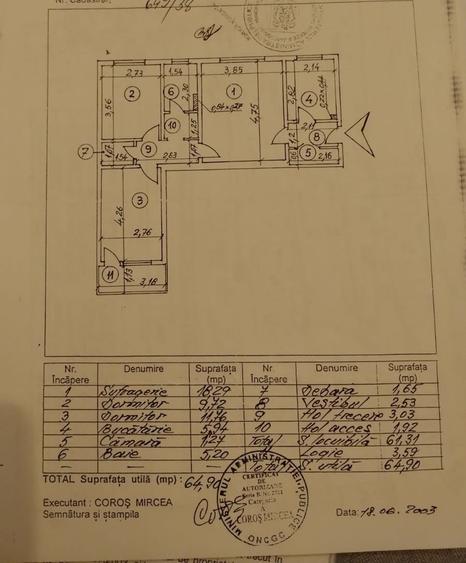 Nr. Cadastral, 647/38
2,73
1,54
3,85
2,14
2
6
1
4
3,56
2,30
2,62
10
1,25
4,75
2,11
8
7
1,07
1,54
9
2,63
1,17
1,2
5
2,16
3
4,26
2,76
11
1,13
3,18
Nr. Încăpere Denumire Suprafața (mp) Nr. Încăpere Denumire Suprafața (mp)
1 Sufragerie 18,29 7 Debara 1,65
2 Dormitor 9,72 8 Vestibul 2,53
3 Dormitor 11,76 9 Hol trecere 3,03
4 Bucătărie 5,94 10 Hol acces 1,92
5 Cămară 1,27 Total S. locuibilă 61,31
6 Baie 5,20 Logie 3,59
— — — Total S. utilă 64,90
TOTAL Suprafața utilă (mp): 64,90
Executant : COROȘ MIRCEA
Semnătura și ștampila
Data: 18.06.2003
MINISTERUL ADMINISTRAȚIEI PUBLICE
CERTIFICAT
DE
AUTORIZARE
Categoria
A
COROȘ MIRCEA
ONCGC